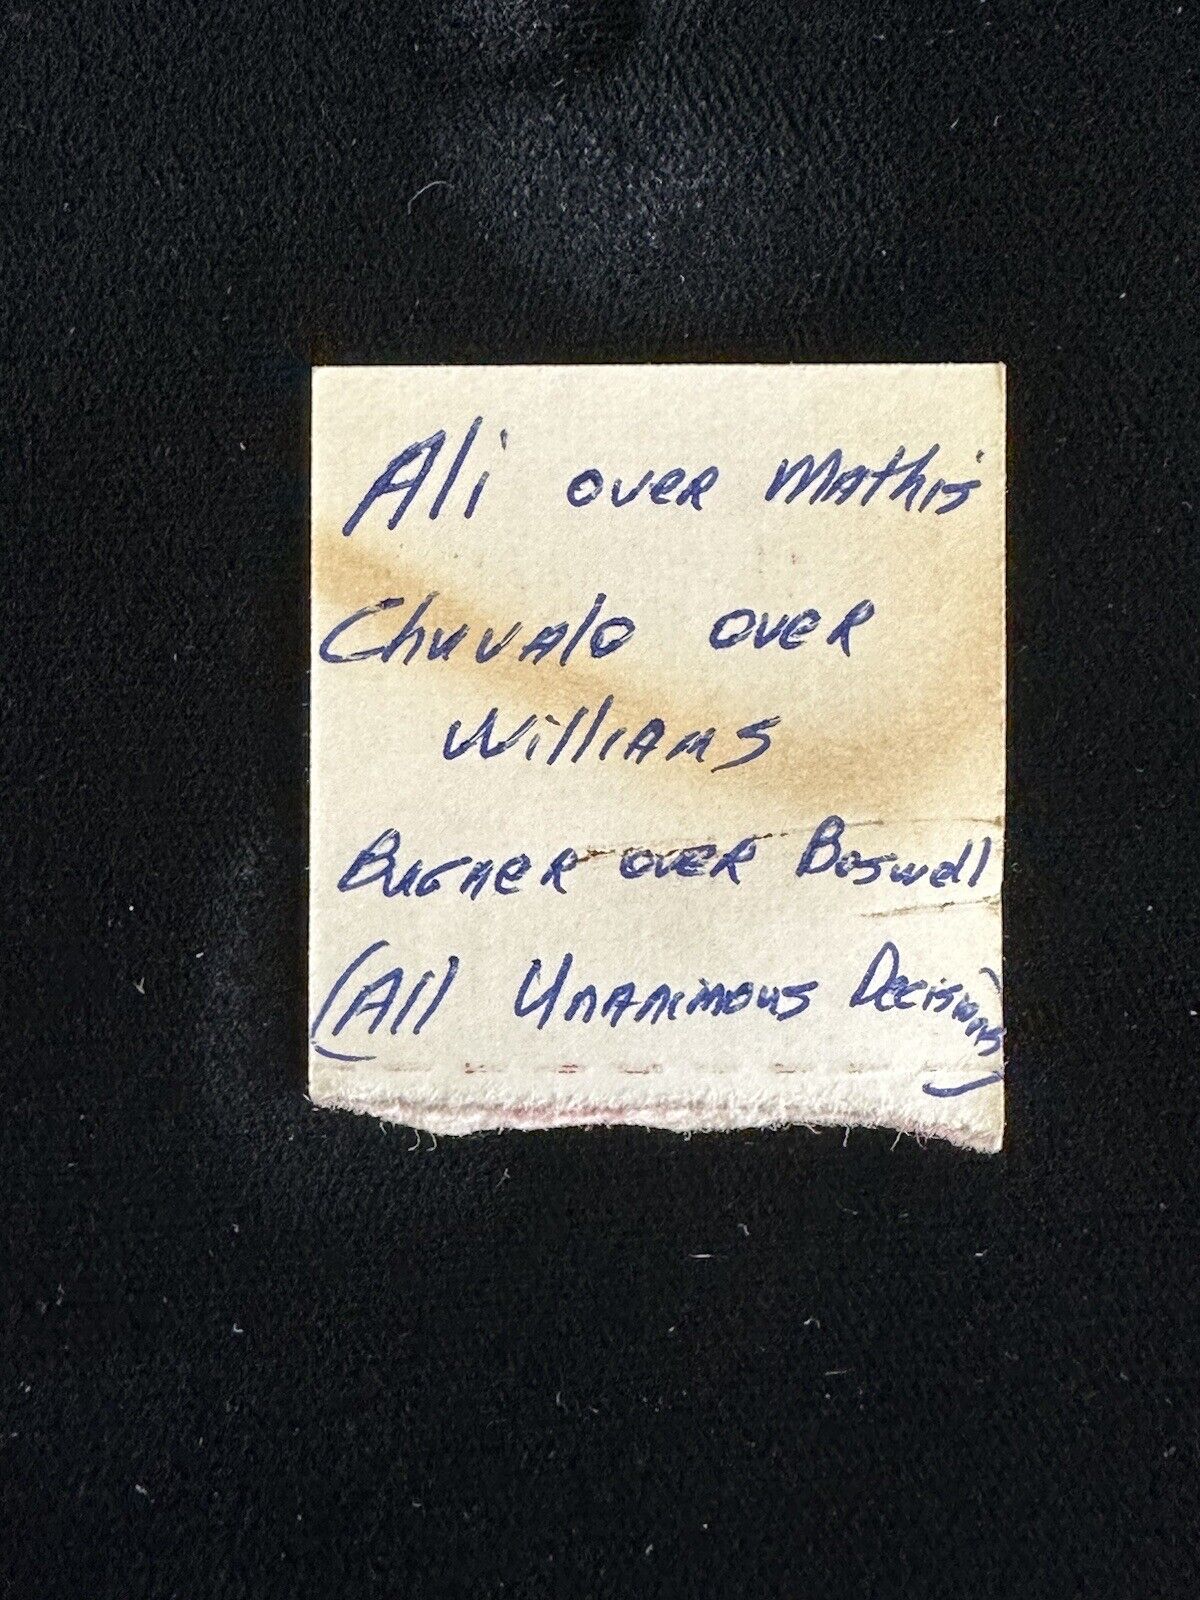 Ali over Mathis
Chuvalo over
Williams
Bugner over Boswell
(All Unanimous Decisions)